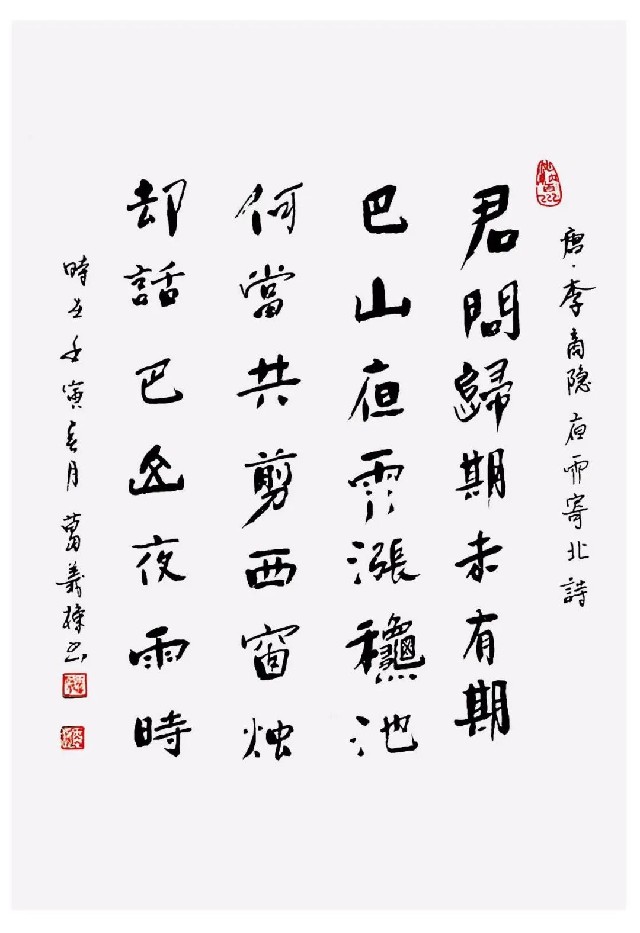 唐·李商隐夜雨寄北詩
君問歸期未有期
巴山夜雨漲龝池
何當共剪西窗烛
却話巴山夜雨時
時在壬寅春月 葛義樑书